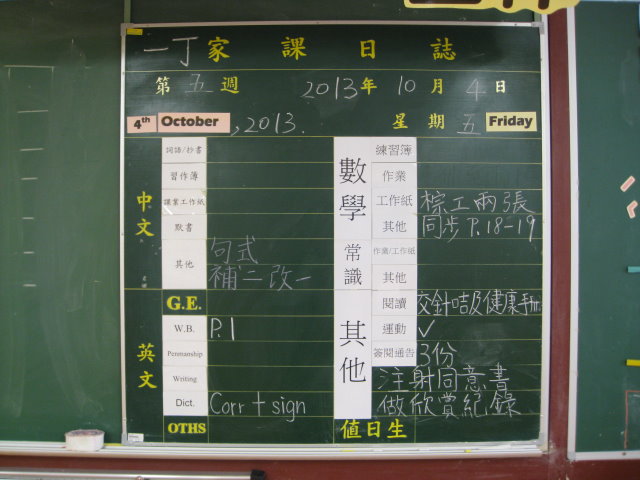 一丁家課日誌
第五週 2013年10月4日
4th October, 2013. 星期五 Friday
中文
詞語/抄書
習作簿
課業工作紙
默書
其他 句式
補二改一
英文
G.E.
W.B. P.1
Penmanship
Writing
Dict. Corr + sign
OTHS
數學
練習簿
作業
工作紙 棕工兩張
其他 同步 P.18-19
常識
作業/工作紙
其他
其他
閱讀 交針咭及健康手冊
運動 ✓
簽閱通告 3份
注射同意書
做欣賞紀錄
值日生